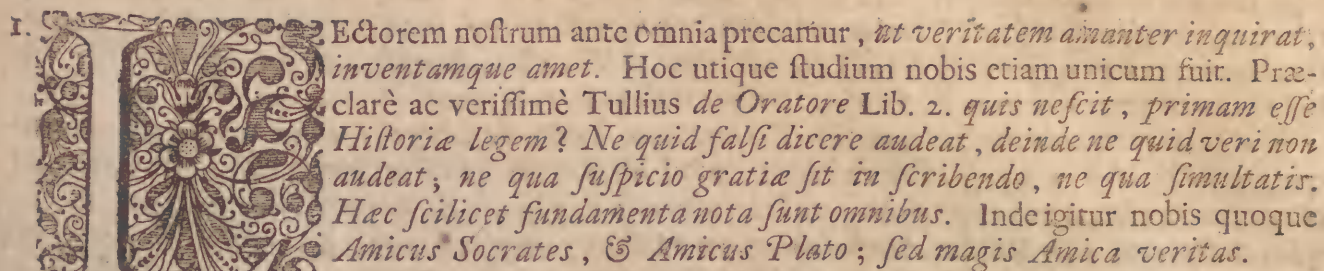 1. LEctorem noſtrum ante omnia precamur, ut veritatem amanter inquirat,
inventamque amet. Hoc utique ſtudium nobis etiam unicum fuit. Præ-
clarè ac veriſſimè Tullius de Oratore Lib. 2. quis neſcit, primam eſſe
Hiſtoriæ legem? Ne quid falſi dicere audeat, deinde ne quid veri non
audeat; ne qua ſuſpicio gratiæ ſit in ſcribendo, ne qua ſimultatis.
Hæc ſcilicet fundamenta nota ſunt omnibus. Inde igitur nobis quoque
Amicus Socrates, & Amicus Plato; ſed magis Amica veritas.